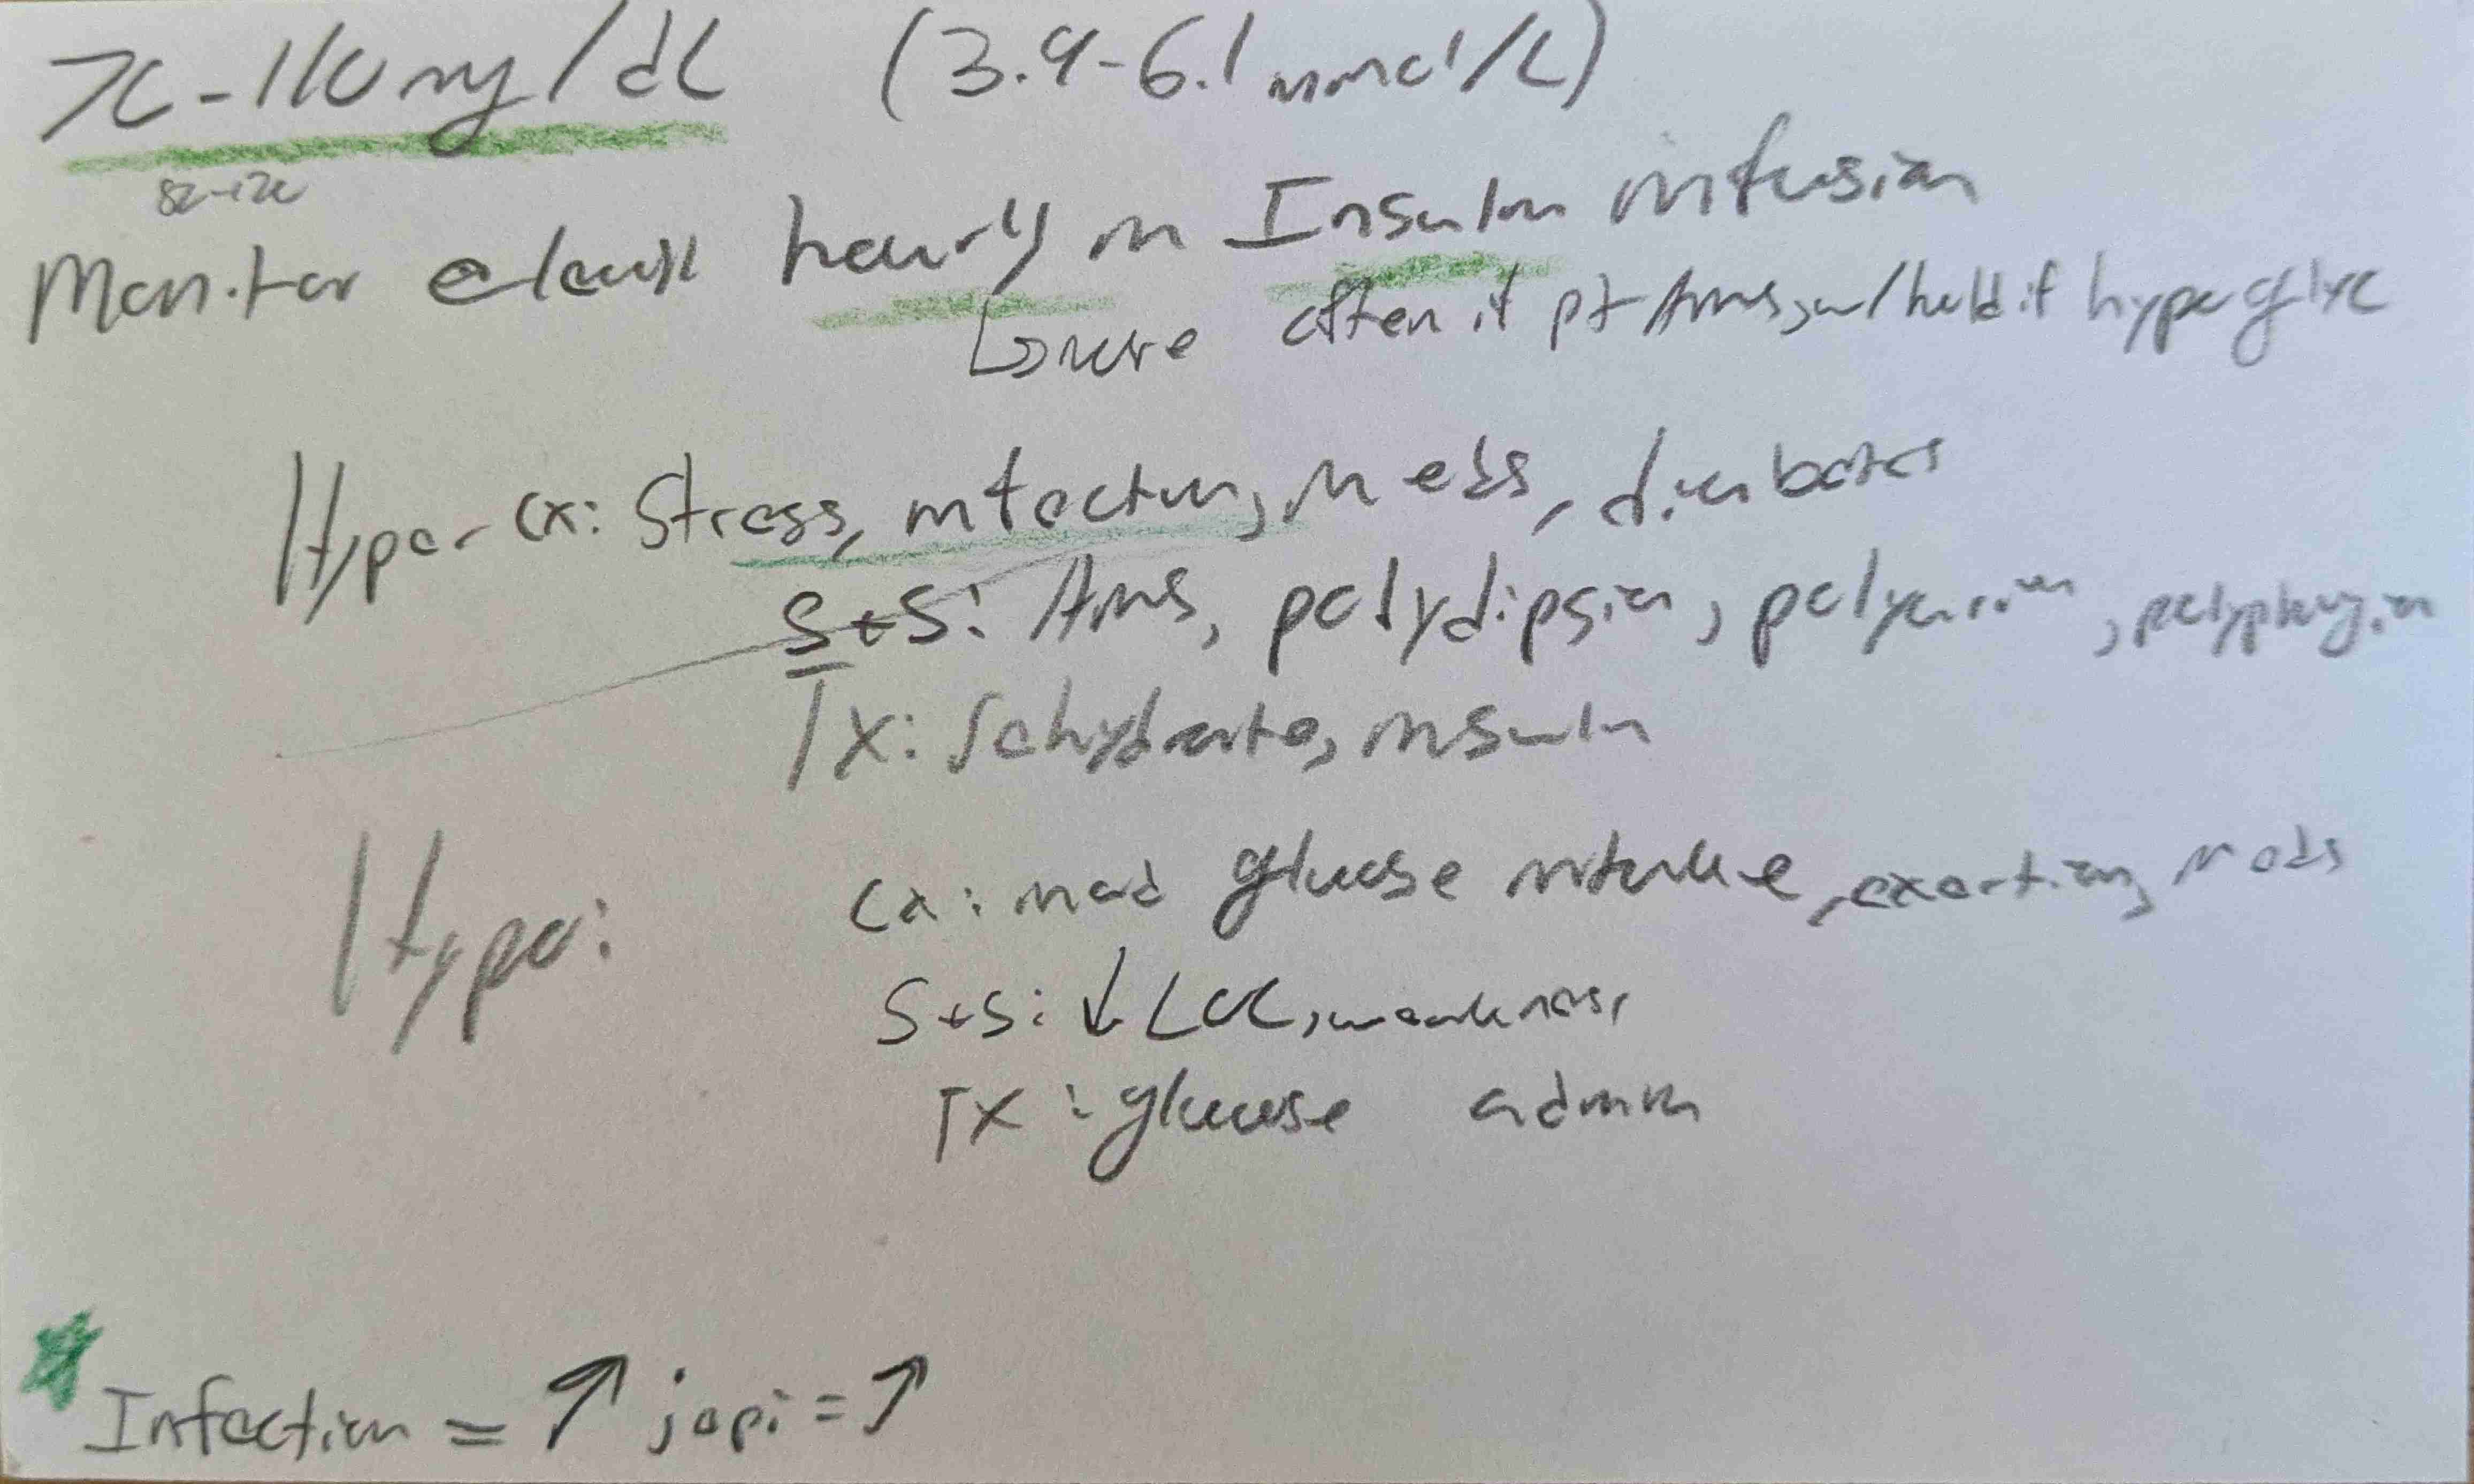 70-110 mg/dL (3.9-6.1 mmol/L)
Monitor @ least hourly on Insulin infusion
↳ more often if pt AMS, w/held if hyperglyc
Hyper Cx: Stress, infection, meds, diabetes
S+S: AMS, polydipsia, polyuria, polyphagia
Tx: rehydrate, insulin
Hypo: Cx: inad glucose intake, exertion, meds
S+S: ↓ LOC, weakness
TX: glucose admin
Infection = ↑ =↑